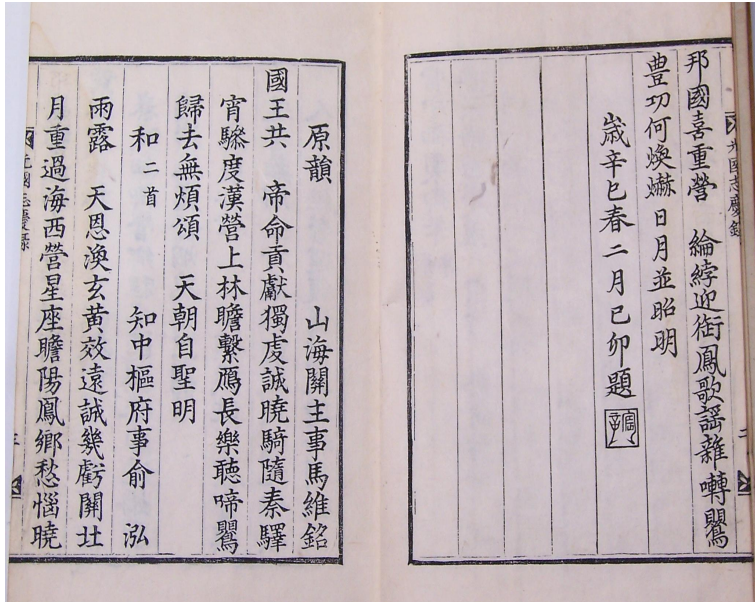 邦國喜重營 綸綍迎銜鳳歌謡雜囀鸎
豊功何煥爀日月並昭明
歲辛巳春二月己卯題
光國志慶錄
二
原韻 山海關主事馬維銘
國王共 帝命貢獻獨虔誠曉騎隨秦驛
宵驂度漢營上林瞻繫鴈長樂聽啼鸎
歸去無煩頌 天朝自聖明
和二首 知中樞府事俞泓
雨露 天恩渙玄黃效遠誠幾虧關上
月重過海西營星座瞻陽鳳鄉愁惱曉
光國志慶錄
三